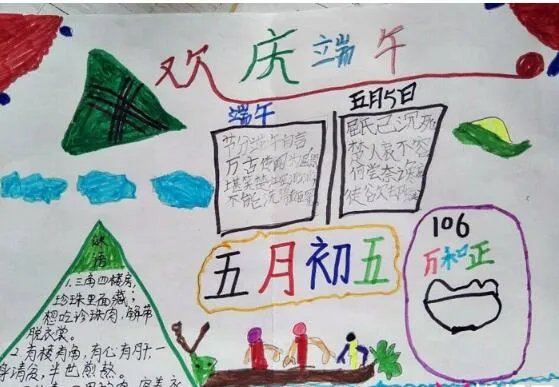 欢庆端午
端午
节分端午自言，
万古传闻为屈原
堪笑楚江
不能洗
五月5日
屈氏已沉死
楚人哀不容
何尝奈
徒欲
五月初五
106
万和正
谜语
1.三角四楼房，
珍珠里面藏；
想吃珍珠肉，解带
脱衣裳。
2.有棱有角，有心有肝，一
身清白，半世煎熬。